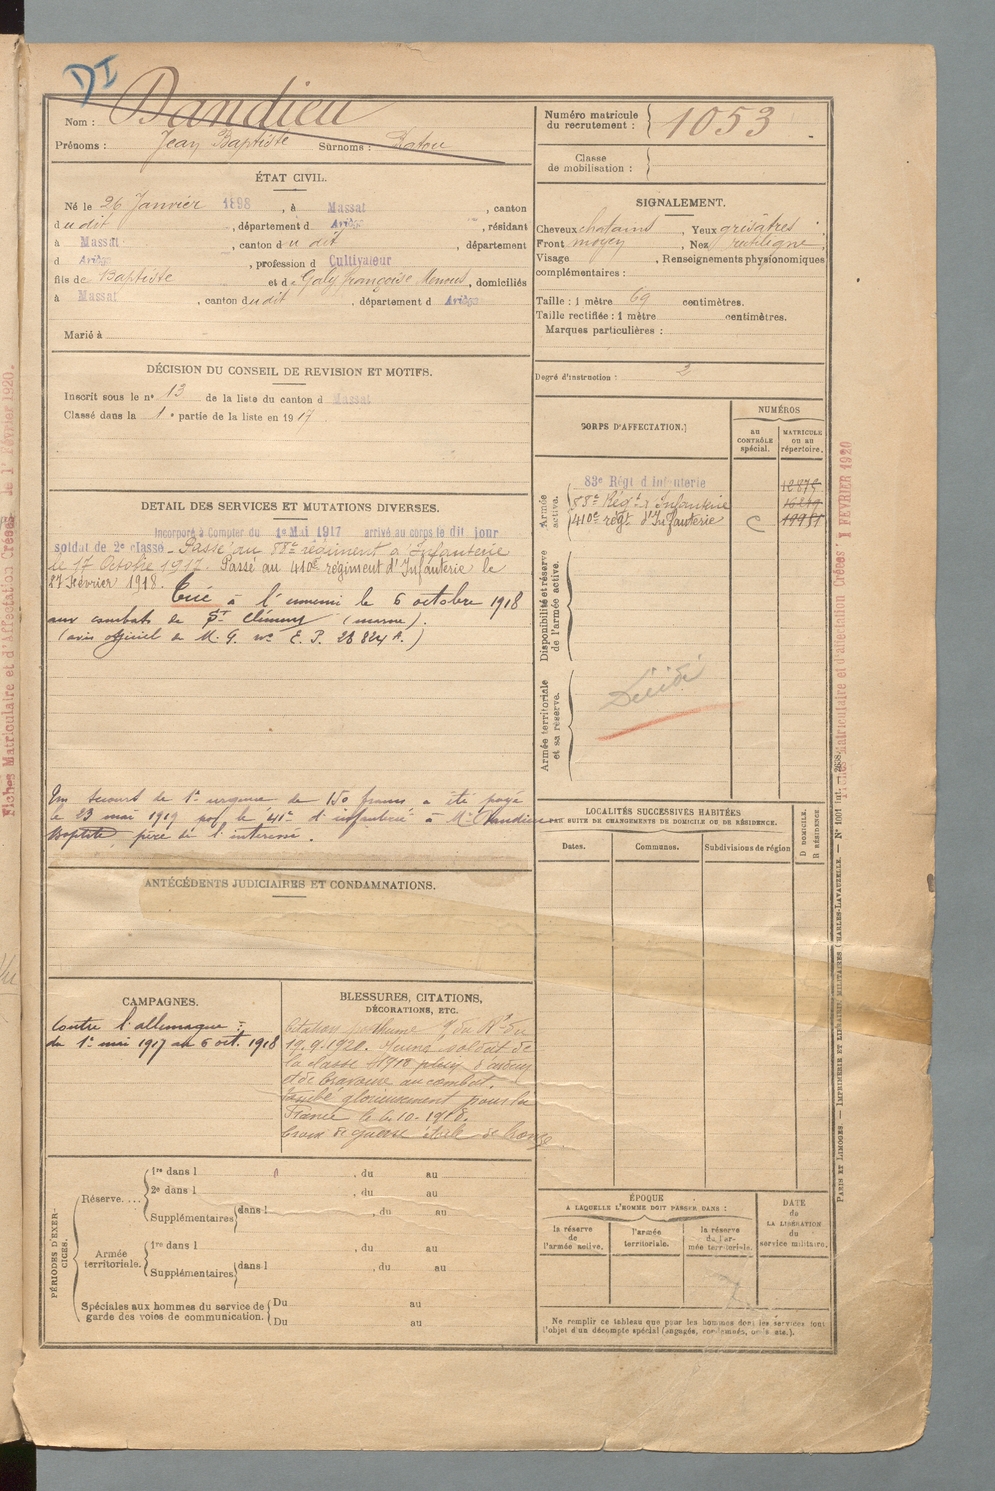 DI
Nom : Dandieu
Prénoms : Jean Baptiste Surnoms : Ratou
Numéro matricule du recrutement : 1053
Classe de mobilisation :
ÉTAT CIVIL.
Né le 26 Janvier 1898, à Massat, canton
dudit, département d Ariège, résidant
à Massat, canton dudit, département
d Ariège, profession d Cultivateur
fils de Baptiste et de Galy françoise, domiciliés
à Massat, canton dudit, département d Ariège
Marié à
SIGNALEMENT.
Cheveux chatains, Yeux grisâtres
Front moyen, Nez rectiligne
Visage , Renseignements physionomiques
complémentaires :
Taille : 1 mètre 69 centimètres.
Taille rectifiée : 1 mètre centimètres.
Marques particulières :
Degré d'instruction : 2
DÉCISION DU CONSEIL DE REVISION ET MOTIFS.
Inscrit sous le no 13 de la liste du canton d Massat
Classé dans la 1e partie de la liste en 1917
CORPS D'AFFECTATION.
NUMÉROS
au CONTRÔLE spécial.
MATRICULE ou au répertoire.
Armée active.
83e Régt d'Infanterie
88e Régt d'Infanterie
410e régt d'Infanterie C
Disponibilité et réserve de l'armée active.
Armée territoriale et sa réserve.
Décédé
DETAIL DES SERVICES ET MUTATIONS DIVERSES.
Incorporé à Compter du 1er Mai 1917 arrivé au corps le dit jour
soldat de 2e classe. Passé au 88e régiment d'Infanterie
le 17 Octobre 1917. Passé au 410e régiment d'Infanterie le
27 Février 1918.
Tué à l'ennemi le 6 octobre 1918
aux combats de St (marne).
(avis officiel de M. G. no E. P. 23824 R.)
Un secours de 1e urgence de 150 francs a été payé
le 23 mai 1919 par le 41e d'infanterie à Mr Dandieu
Baptiste, père de l'intéressé.
LOCALITÉS SUCCESSIVES HABITÉES
PAR SUITE DE CHANGEMENTS DE DOMICILE OU DE RÉSIDENCE.
Dates.
Communes.
Subdivisions de région
D DOMICILE.
R RÉSIDENCE
ANTÉCÉDENTS JUDICIAIRES ET CONDAMNATIONS.
CAMPAGNES.
Contre l'allemagne :
du 1er mai 1917 au 6 oct. 1918
BLESSURES, CITATIONS, DÉCORATIONS, ETC.
Citation posthume du
19.9.1920. Jeune soldat de
la classe 1918 plein d'ardeur
et de bravoure au combat.
Tombé glorieusement pour la
France le 6-10-1918.
Croix de guerre étoile de bronze
PÉRIODES D'EXERCICES.
Réserve....
1re dans l , du au
2e dans l , du au
Supplémentaires dans l , du au
Armée territoriale.
1re dans l , du au
Supplémentaires dans l , du au
Spéciales aux hommes du service de garde des voies de communication.
Du au
Du au
ÉPOQUE
A LAQUELLE L'HOMME DOIT PASSER DANS :
la réserve de l'armée active.
l'armée territoriale.
la réserve de l'armée territoriale.
DATE de LA LIBÉRATION du service militaire.
Ne remplir ce tableau que pour les hommes dont les services font
l'objet d'un décompte spécial (engagés, condamnés, omis etc.).
Fiches Matriculaire et d'Affectation Créées le 1 Février 1920.
Fiches Matriculaire et d'affectation Créées 1 FEVRIER 1920
PARIS ET LIMOGES. — IMPRIMERIE ET LIBRAIRIE MILITAIRES CHARLES-LAVAUZELLE.